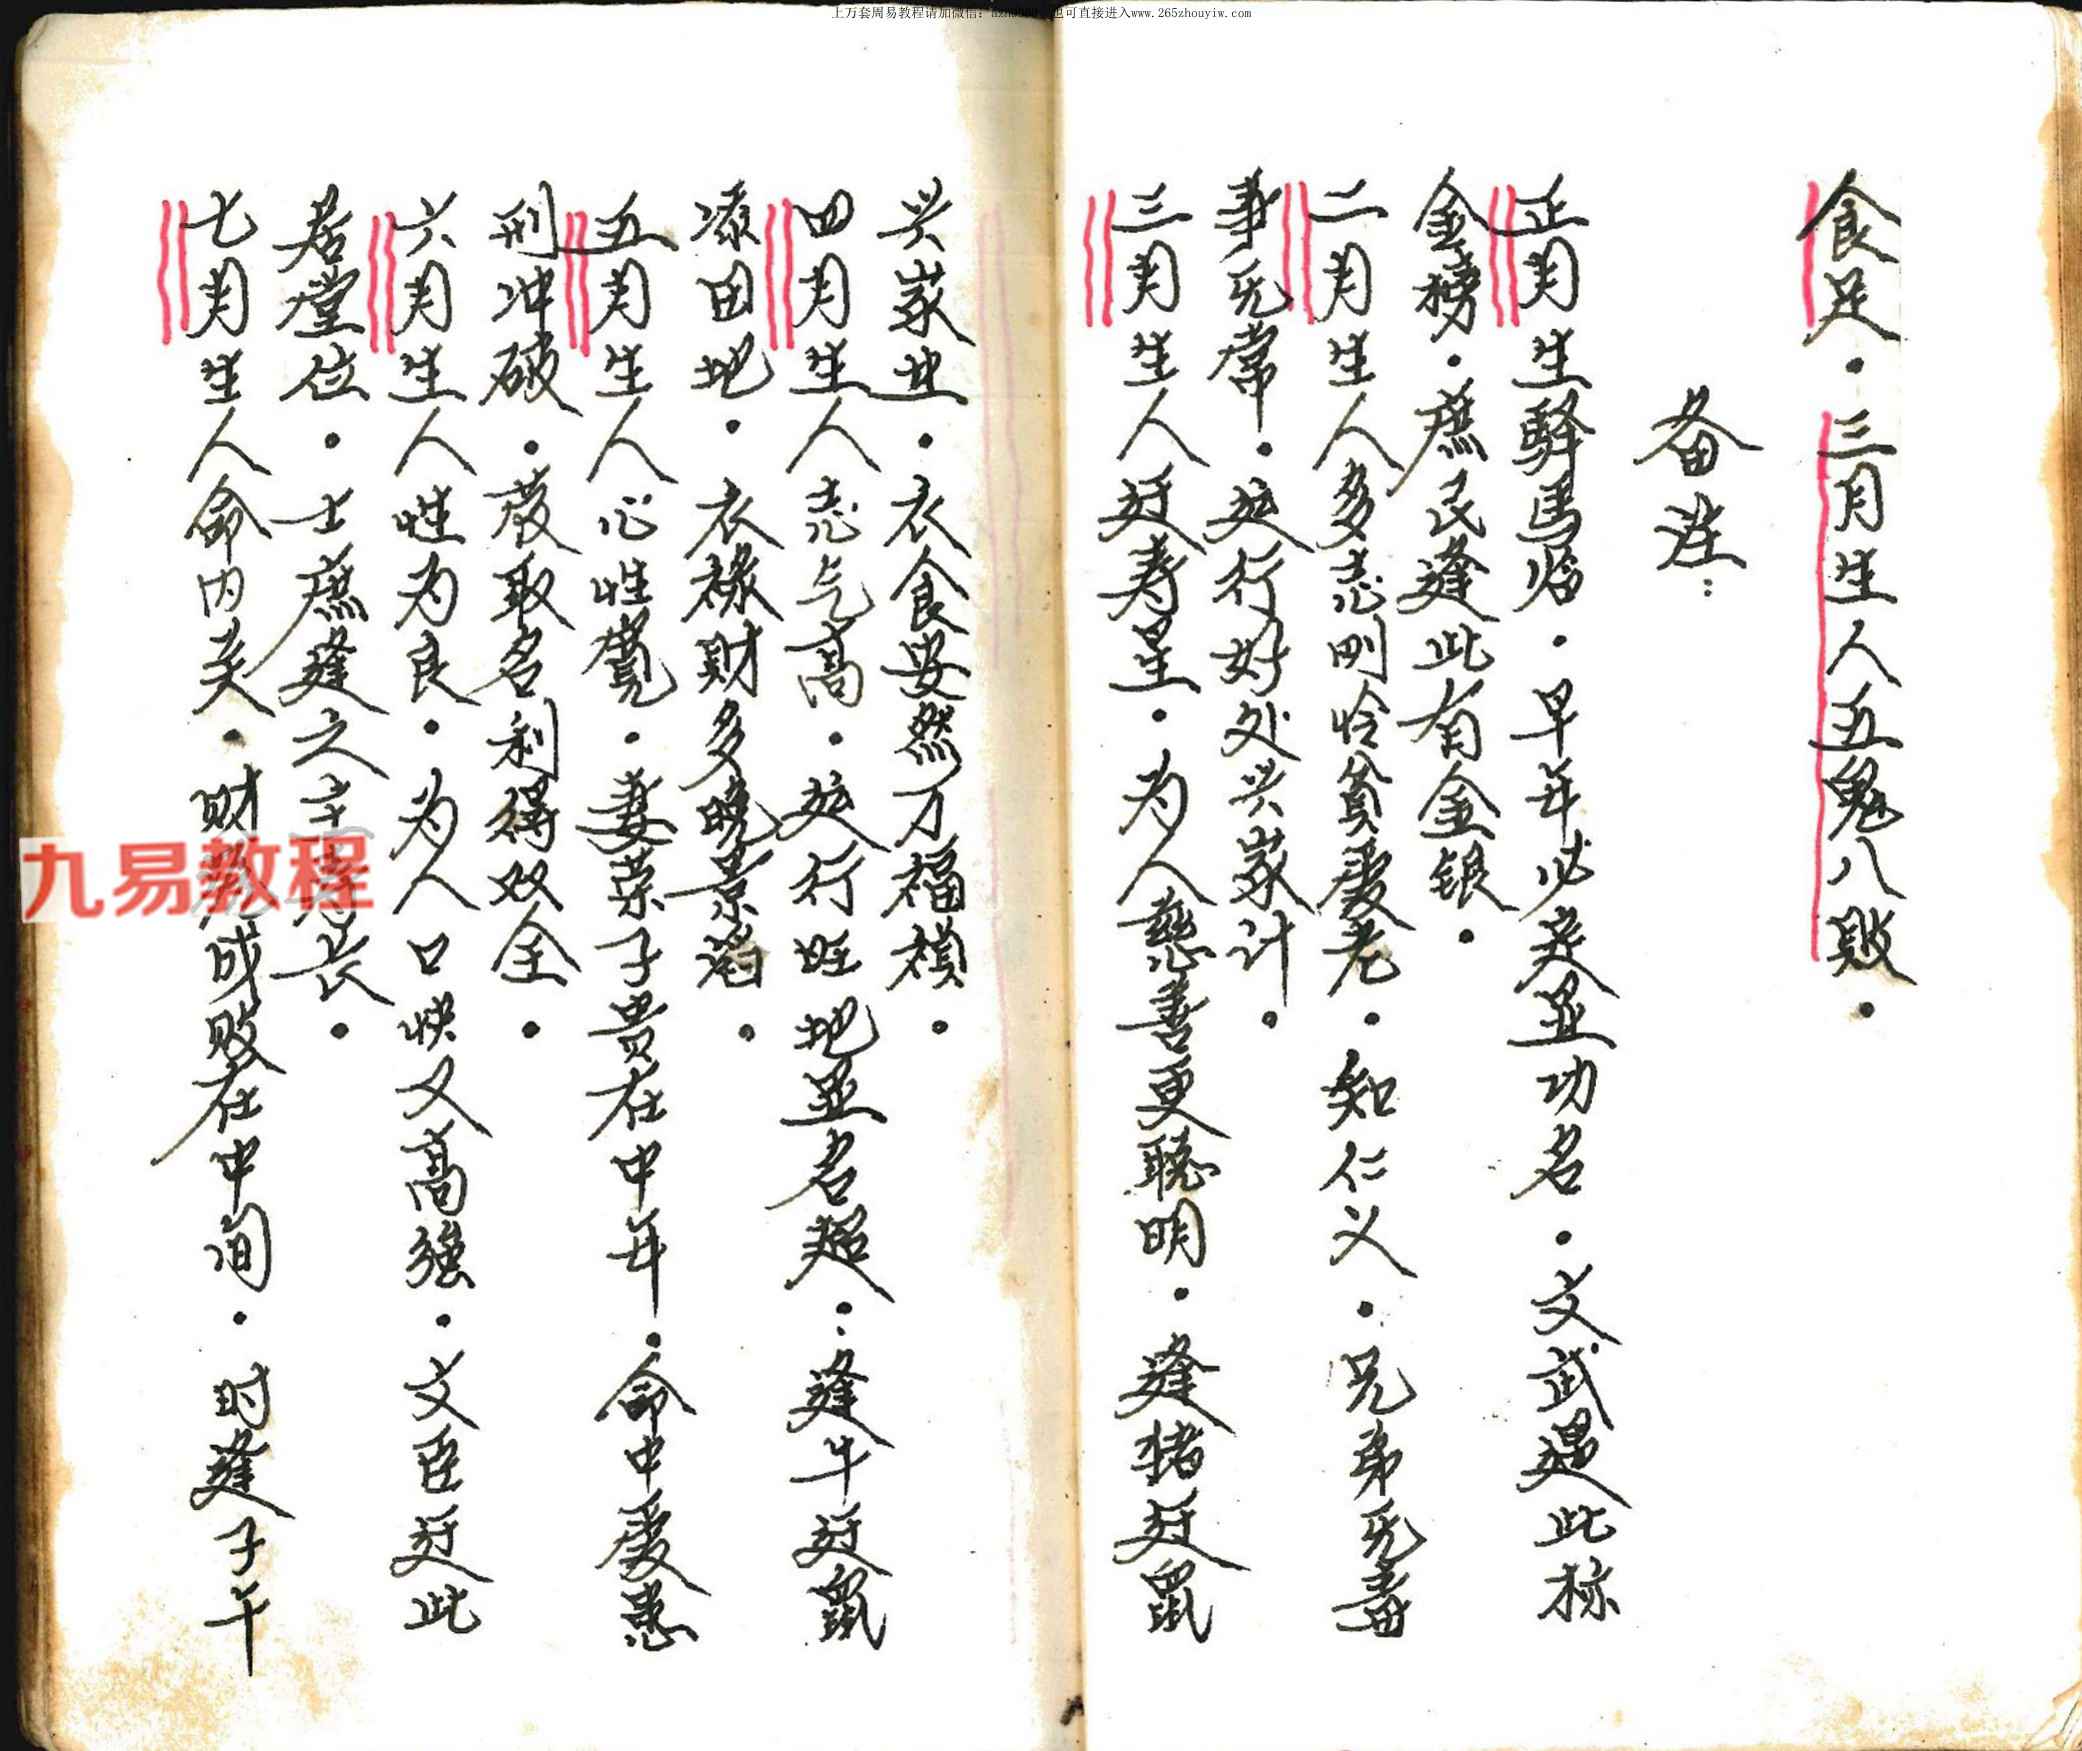 上万套周易教程请加微信: 也可直接进入www.265zhouyiw.com
食足．三月生人五鬼八败．
备注：
正月生驿马临．早年必定显功名．文武遇此标
金榜．庶民逢此有金银．
二月生人多志刚怜贫爱老．知仁义．兄弟无毒
事无常．运行好处兴家计．
三月生人廷寿星．为人慈善更聪明．逢猪廷鼠
兴家业．衣食安然万福祯．
四月生人志气高．运行旺地显名超．逢牛廷鼠
添田地．衣禄财多晚景滔．
五月生人心性宽．妻荣子贵在中年．命中爱患
刑冲破．发取名利得双全．
六月生人性为良．为人口快又高强．文臣廷此
居堂位．士庶逢之主寿长．
七月生人命内关．财 成败在中间．时逢子午
九易教程